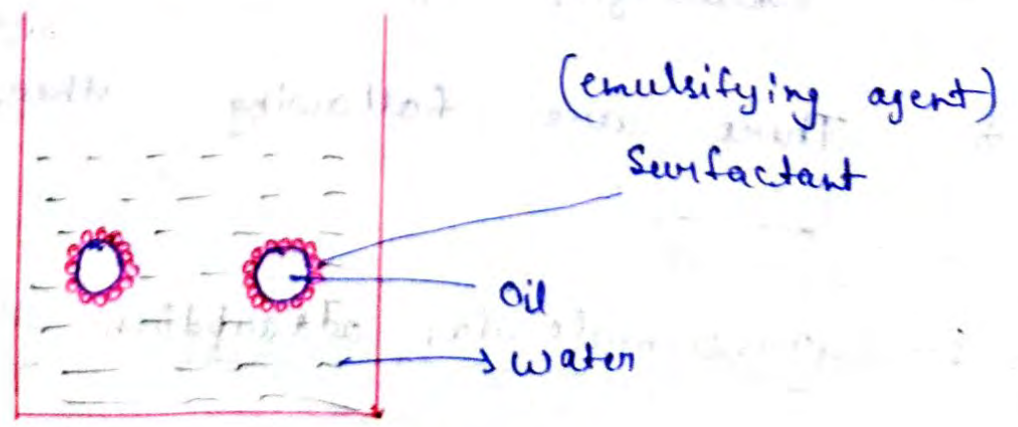 (emulsifying agent)
Surfactant
Oil
Water